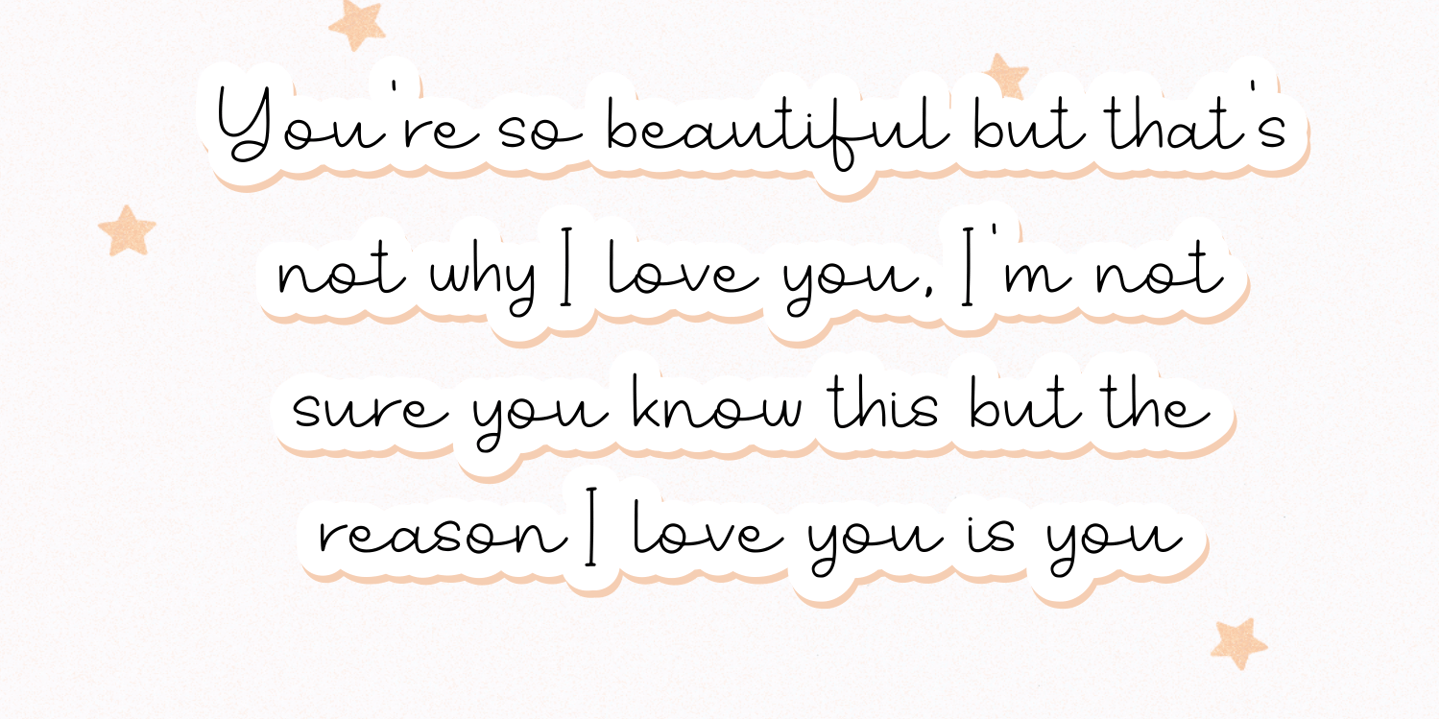 You're so beautiful but that's
not why I love you, I'm not
sure you know this but the
reason I love you is you